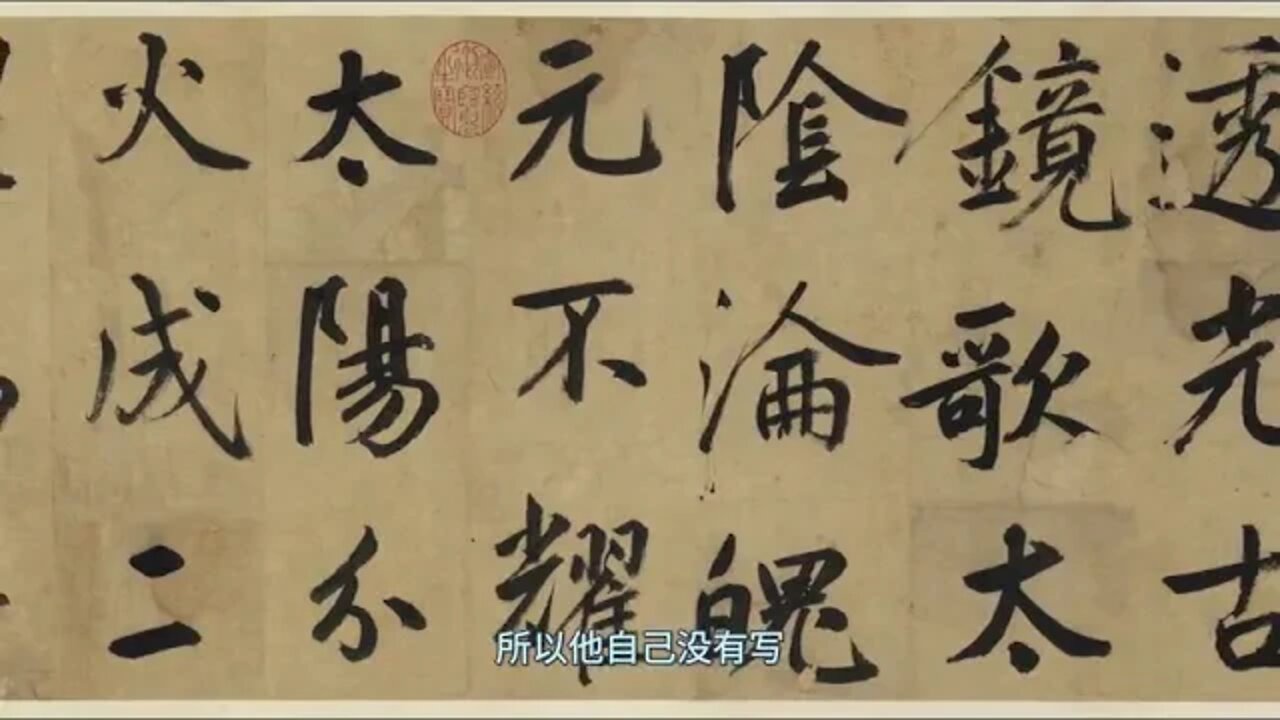 透光古
鏡歌太
陰淪魄
元不耀
太陽分
火成二
所以他自己没有写